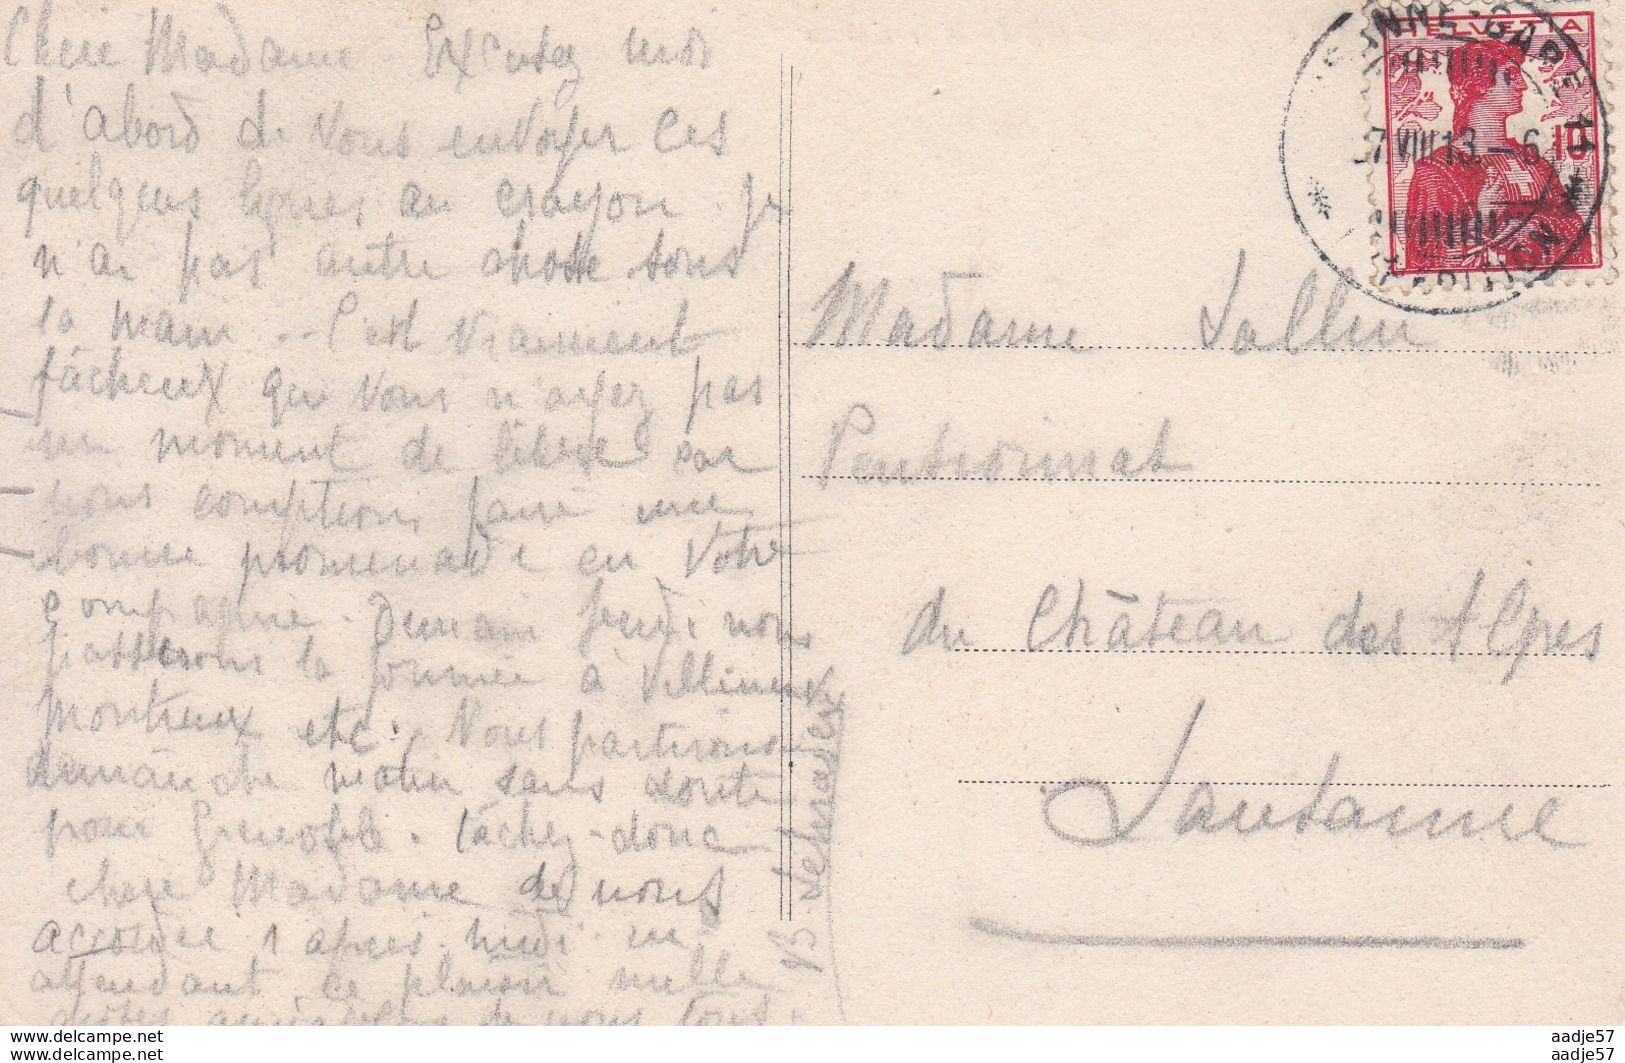 Chère Madame Excusez moi
d'abord de vous envoyer ces
quelques lignes au crayon. Je
n'ai pas autre chose sous
la main. - C'est vraiment
fâcheux que vous n'ayez pas
un moment de libre car
nous comptions faire une
bonne promenade en votre
compagnie. Demain jeudi nous
passerons la journée à Villeneuve
Montreux etc. Nous partirons
dimanche matin sans doute
pour Grenoble. Tâchez-donc
chère Madame de nous
accorder 1 après-midi en
attendant ce plaisir mille
choses aimables de nous tous.
HELVETIA
10
NNE-GARE
7.VIII.13.-6
Madame
Pensionnat
du Château des Alpes
Lausanne
aadje57
aadje57
delcampe.net
delcampe.net